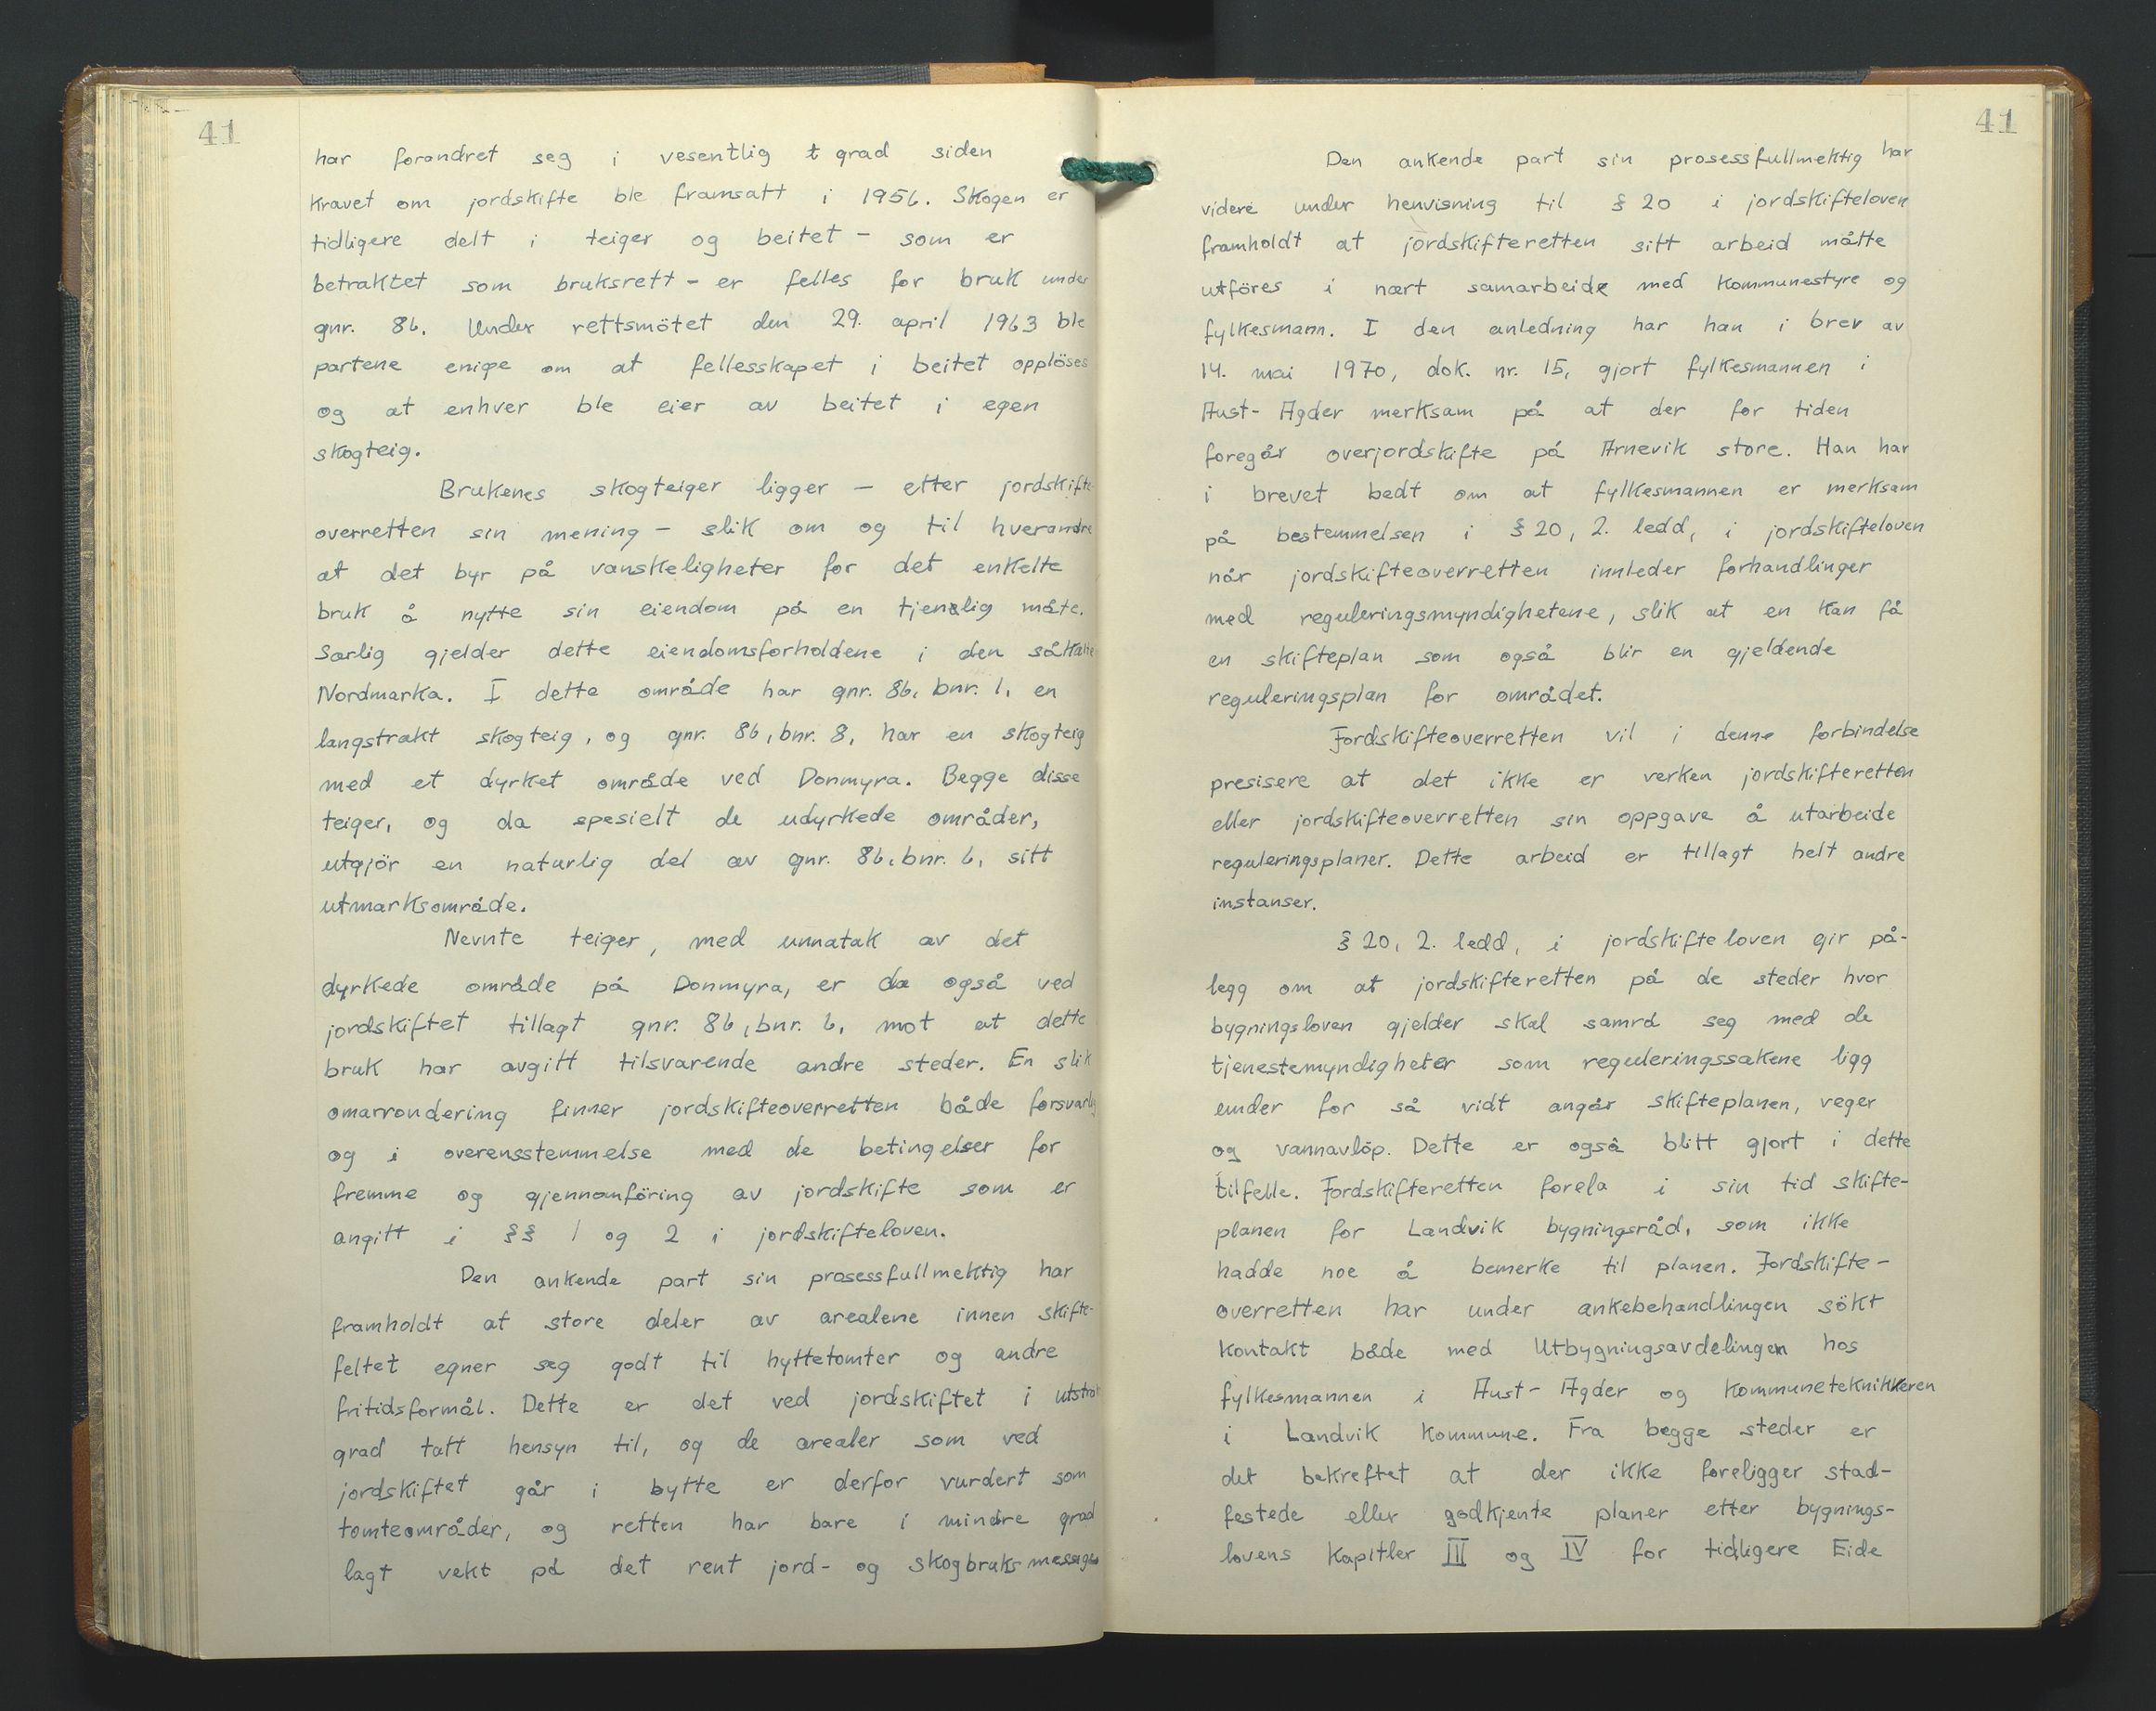 41
har forandret seg i vesentlig t grad siden
kravet om jordskifte ble framsatt i 1956. Skogen er
tidligere delt i teiger og beitet – som er
betraktet som bruksrett – er felles for bruk under
gnr. 86. Under rettsmötet den 29. april 1963 ble
partene enige om at fellesskapet i beitet opplöses
og at enhver ble eier av beitet i egen
skogteig.
Brukenes skogteiger ligger – etter jordskifte
overretten sin mening – slik om og til hverandre
at det byr på vanskeligheter for det enkelte
bruk å nytte sin eiendom på en tjenelig måte.
Særlig gjelder dette eiendomsforholdene i den såkalte
Nordmarka. I dette område har gnr. 86, bnr. 1, en
langstrakt skogteig, og gnr. 86, bnr. 8, har en skogteig
med et dyrket område ved Donmyra. Begge disse
teiger, og da spesielt de udyrkede områder,
utgjör en naturlig del av gnr. 86, bnr. 6, sitt
utmarksområde.
Nevnte teiger, med unnatak av det
dyrkede område på Donmyra, er da også ved
jordskiftet tillagt gnr. 86, bnr. 6, mot at dette
bruk har avgitt tilsvarende andre steder. En slik
omarrondering finner jordskifteoverretten både forsvarlig
og i overensstemmelse med de betingelser for
fremme og gjennomföring av jordskifte som er
angitt i §§ 1 og 2 i jordskifteloven.
Den ankende part sin prosessfullmektig har
framholdt at store deler av arealene innen skifte-
feltet egner seg godt til hyttetomter og andre
fritidsformål. Dette er det ved jordskiftet i utstrakt
grad tatt hensyn til, og de arealer som ved
jordskiftet går i bytte er derfor vurdert som
tomteområder, og retten har bare i mindre grad
lagt vekt på det rent jord- og skogbruksmessige
41
Den ankende part sin prosessfullmektig har
videre under henvisning til § 20 i jordskifteloven
framholdt at jordskifteretten sitt arbeid måtte
utföres i nært samarbeide med kommunestyre og
fylkesmann. I den anledning har han i brev av
14. mai 1970, dok. nr. 15, gjort fylkesmannen i
Aust-Agder merksam på at der for tiden
foregår overjordskifte på Arnevik store. Han har
i brevet bedt om at fylkesmannen er merksam
på bestemmelsen i § 20, 2. ledd, i jordskifteloven
når jordskifteoverretten innleder forhandlinger
med reguleringsmyndighetene, slik at en kan få
en skifteplan som også blir en gjeldende
reguleringsplan for området.
Jordskifteoverretten vil i denne forbindelse
presisere at det ikke er verken jordskifteretten
eller jordskifteoverretten sin oppgave å utarbeide
reguleringsplaner. Dette arbeid er tillagt helt andre
instanser.
§ 20, 2. ledd, i jordskifteloven gir på-
legg om at jordskifteretten på de steder hvor
bygningsloven gjelder skal samrå seg med de
tjenestemyndigheter som reguleringssakene ligg
under for så vidt angår skifteplanen, veger
og vannavlöp. Dette er også blitt gjort i dette
tilfelle. Jordskifteretten forela i sin tid skifte-
planen for Landvik bygningsråd, som ikke
hadde noe å bemerke til planen. Jordskifte-
overretten har under ankebehandlingen sökt
kontakt både med Utbygningsavdelingen hos
fylkesmannen i Aust-Agder og kommuneteknikkeren
i Landvik kommune. Fra begge steder er
det bekreftet at der ikke foreligger stad-
festede eller godkjente planer etter bygnings-
lovens kapitler III og IV for tidligere Eide